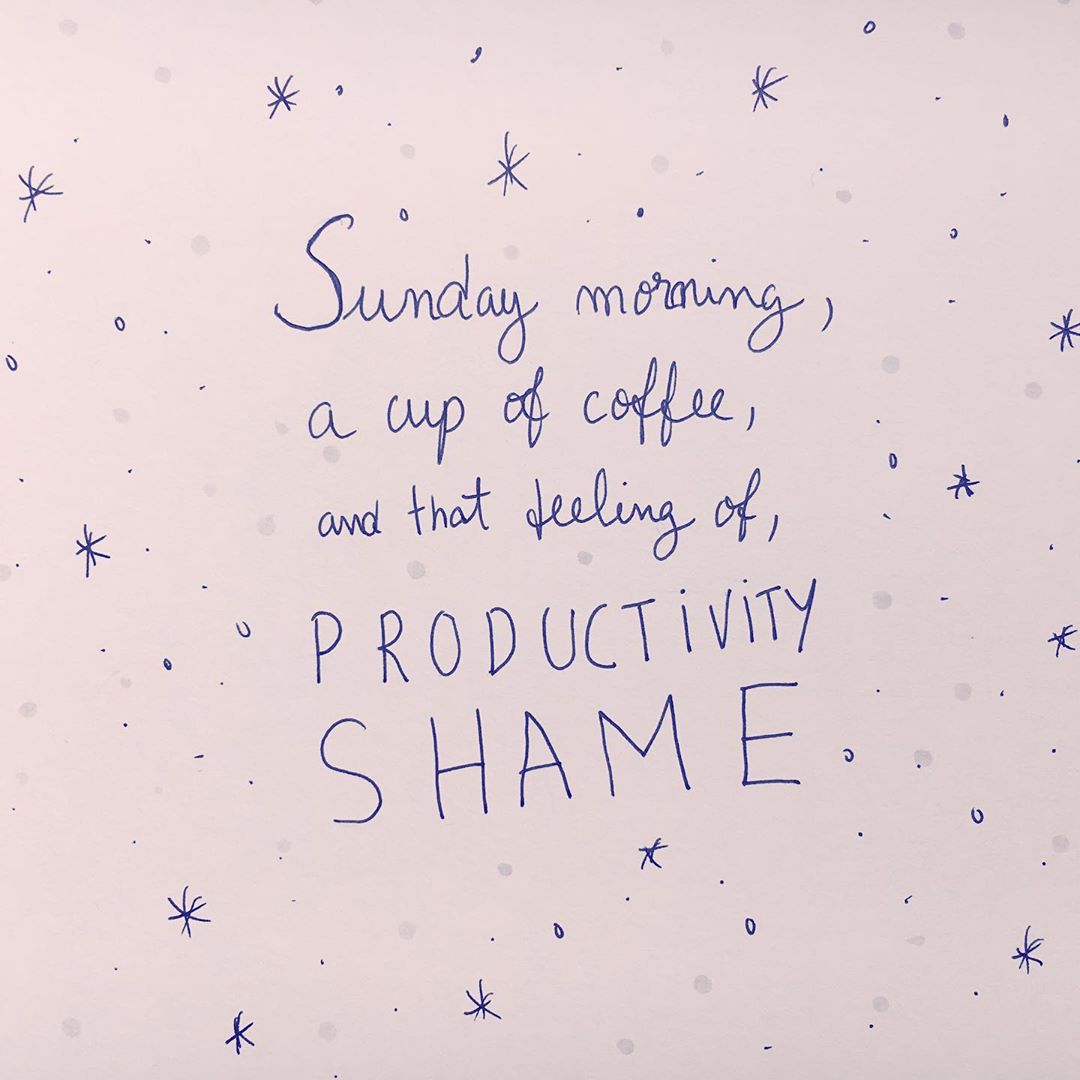 Sunday morning,
a cup of coffee,
and that feeling of,
PRODUCTIVITY
SHAME